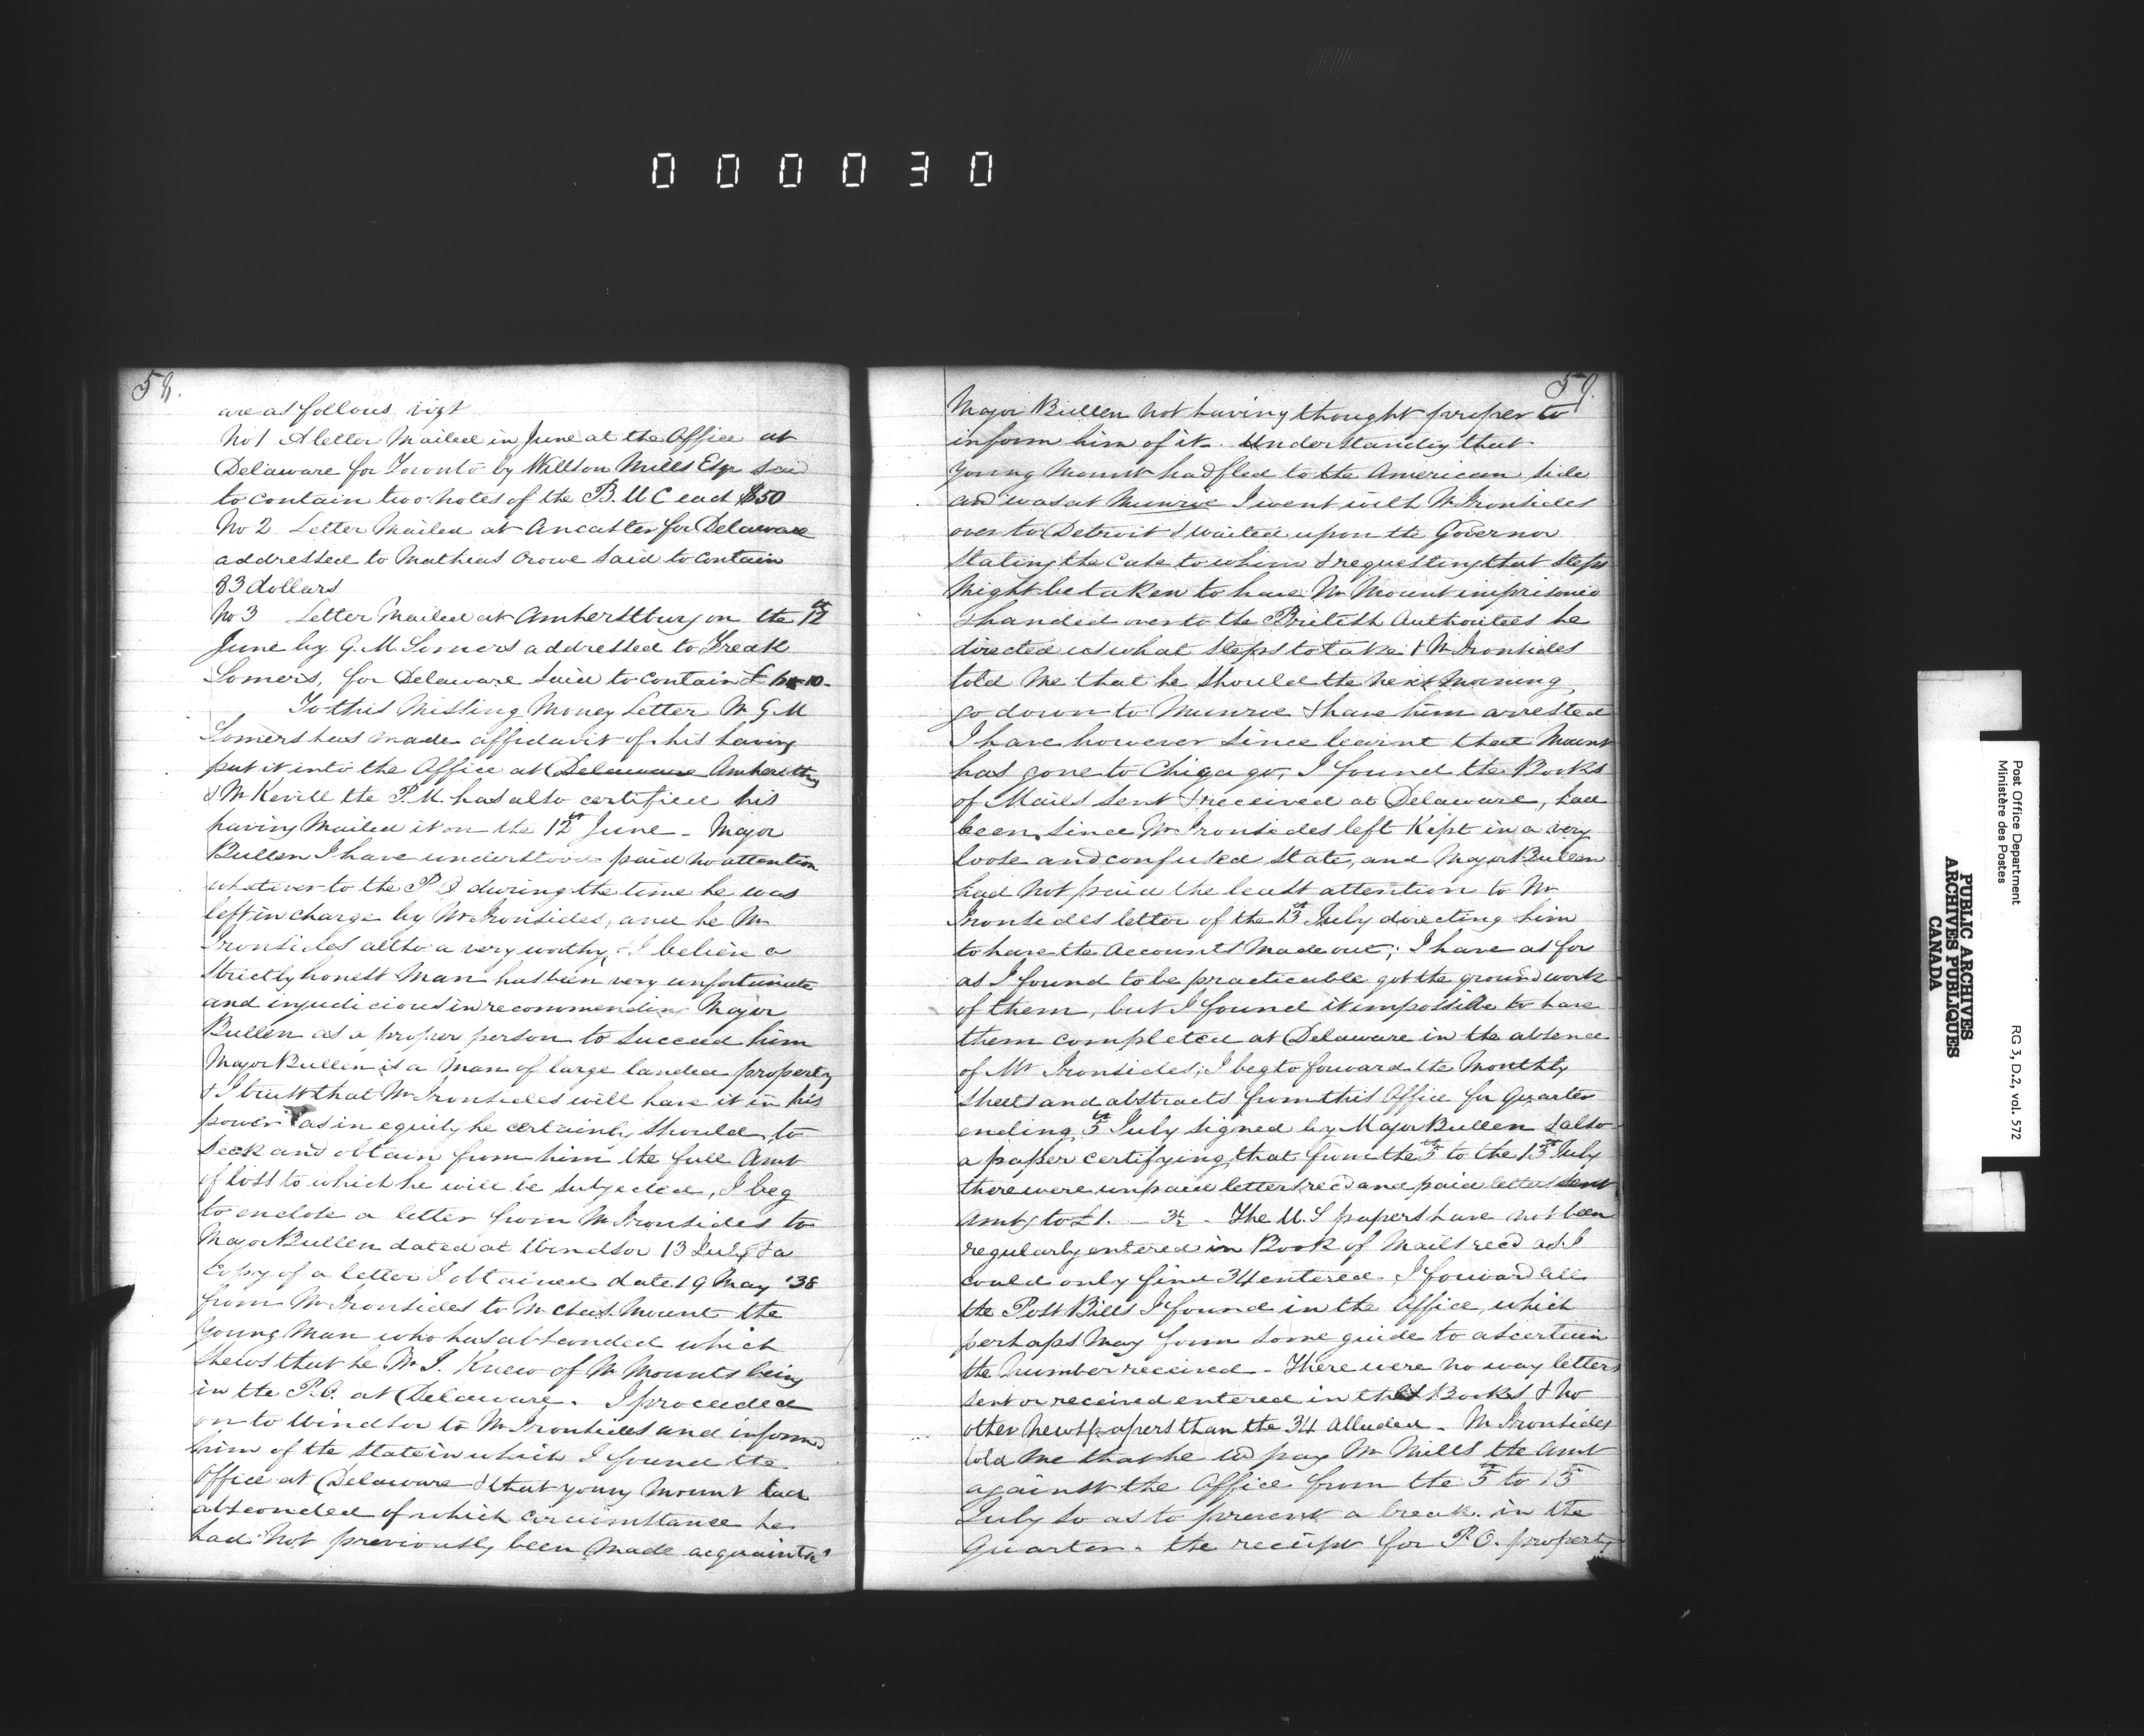 000030
58.
are as follows vizt
No 1 A letter Mailed in June at the Office at
Delaware for Toronto by Willson Mills Esqr said
to contain two notes of the B. U C each $50
No 2 Letter Mailed at Ancaster for Delaware
addressed to Mathias Crowe said to contain
33 dollars
No 3 Letter Mailed at Amherstburg on the 12th
June by G. M. Somers addressed to Fredk
Somers, for Delaware said to contain £ 10-
To this Missing Money Letter Mr G M
Somers has made affidavit of his having
put it into the Office at Delaware Amherstbg
& Mr Kevill the P.M. has also certified his
having Mailed it on the 12th June - Major
Bullen I have understood paid no attention
whatever to the P O during the time he was
left in charge by Mr Ironsides, and he Mr
Ironsides altho a very worthy, & I believe a
strictly honest Man has been very unfortunate
and injudicious in recommending Major
Bullen as a proper person to succeed him
Major Bullen is a Man of large landed property
& I trust that Mr Ironsides will have it in his
power as in equity he certainly should to
seek and obtain from him the full Amt
of loss to which he will be subjected, I beg
to enclose a letter from Mr Ironsides to
Major Bullen dated at Windsor 13 July & a
Copy of a letter I obtained date 19 May '38
from Mr Ironsides to Mr Chas. Mount the
young Man who has absconded which
shews that he Mr I. Knew of Mr Mounts being
in the P.O. at Delaware. I proceeded
on to Windsor to Mr Ironsides and informd
him of the state in which I found the
Office at Delaware & that young Mount had
absconded of which circumstance he
had not previously been made acquainted
59.
Major Bullen not having thought proper to
inform him of it. Understanding that
young Mount had fled to the American side
and was at Munroe I went with Mr Ironsides
over to Detroit & waited upon the Governor
stating the case to whom & requesting that steps
might be taken to have Mr Mount imprisoned
& handed over to the British Authorities he
directed us what steps to take & Mr Ironsides
told me that he should the next morning
go down to Munroe & have him arrested
I have however since learnt that Mount
has gone to Chigago, I found the Books
of Mails sent & received at Delaware, had
been since Mr Ironsides left Kept in a very
loose and confused state, and Major Bullen
had not paid the least attention to Mr
Ironsides letter of the 13th July directing him
to have the Accounts Made out; I have as far
as I found to be practicable got the ground work
of them, but I found it impossible to have
them completed at Delaware in the absence
of Mr Ironsides; I beg to forward the Monthly
Sheets and abstracts from this Office for Quarter
ending 5th July signed by Major Bullen & also
a paper certifying that from the 5th to the 15th July
there were unpaid letters recd and paid letters sent
Amtg to £1. - 3½ - The U. S papers have not been
regularly entered in Book of Mails recd as I
could only find 34 entered. I forward all
the Post Bills I found in the Office, which
perhaps may form some guide to ascertain
the number received - There were no way letters
sent or received entered in the Books & no
other newspapers than the 34 alluded - Mr Ironsides
told me that he wd pay Mr Mills the Amt
against the Office from the 5th to 15th
July so as to prevent a break in the
Quarter. the receipt for P. O. property
Post Office Department
Ministère des Postes
RG 3, D.2, vol. 572
PUBLIC ARCHIVES
ARCHIVES PUBLIQUES
CANADA